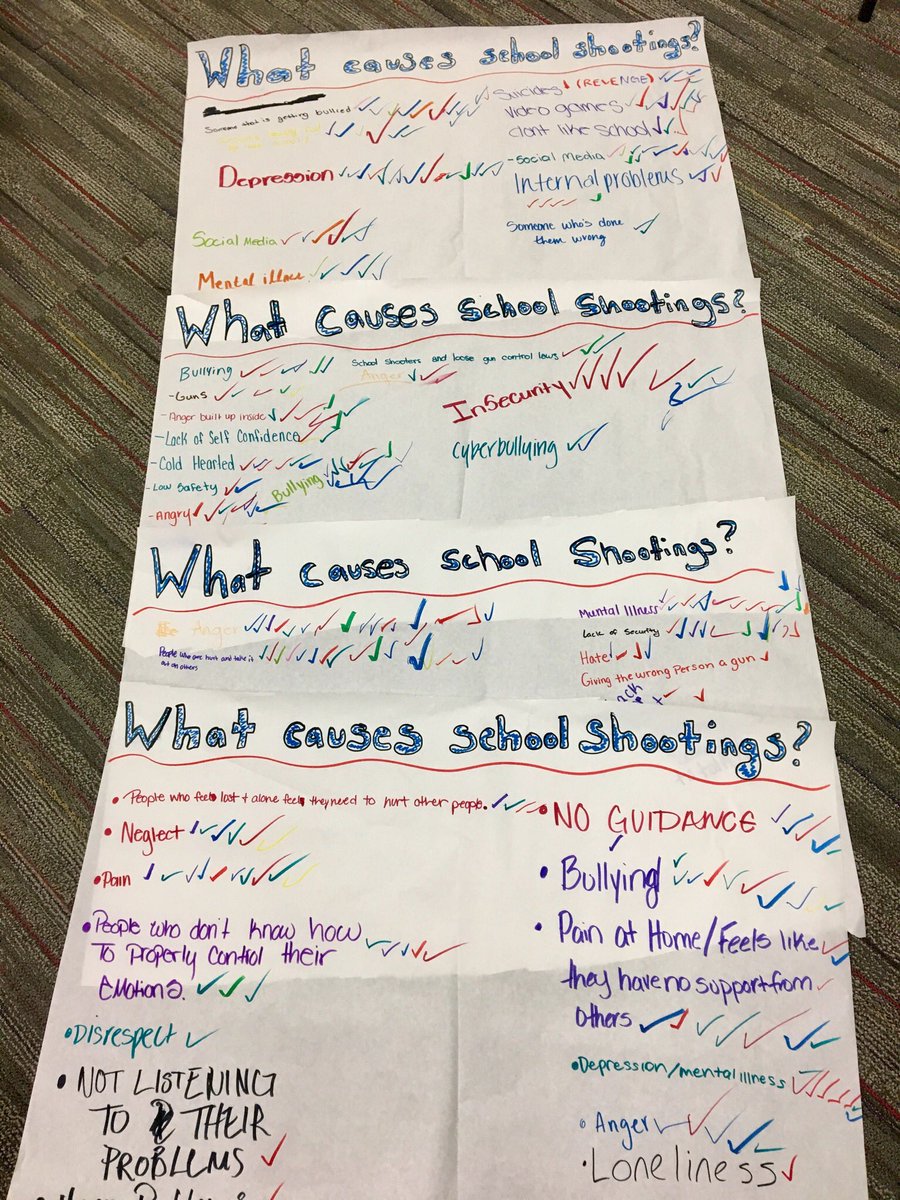 What causes school shootings?
Someone that is getting bullied
Depression
Social Media
Mental illness
Suicides (REVENGE)
video games
dont like school
- Social Media
Internal problems
Someone who's done
them wrong
What causes school shootings?
Bullying
- Guns
- Anger built up inside
- Lack of Self Confidence
- Cold Hearted
- Low Safety
Bullying
- Angry
School Shooters and loose gun control laws
Anger
InSecurity
Cyberbullying
What causes school Shootings?
Anger
People who are hurt and take it
out on others
Muntal Illness
Lack of Security
Hate
Giving the wrong Person a gun
What causes school shootings?
• People who feels lost + alone feels they need to hurt other people.
• Neglect
• Pain
• People who don't know how
To properly control their
Emotions.
• Disrespect
• NOT LISTENING
TO THEIR
PROBLEMS
• NO GUIDANCE
• Bullying
• Pain at Home/Feels like
they have no support from
others
• Depression/mental illness
• Anger
• Loneliness